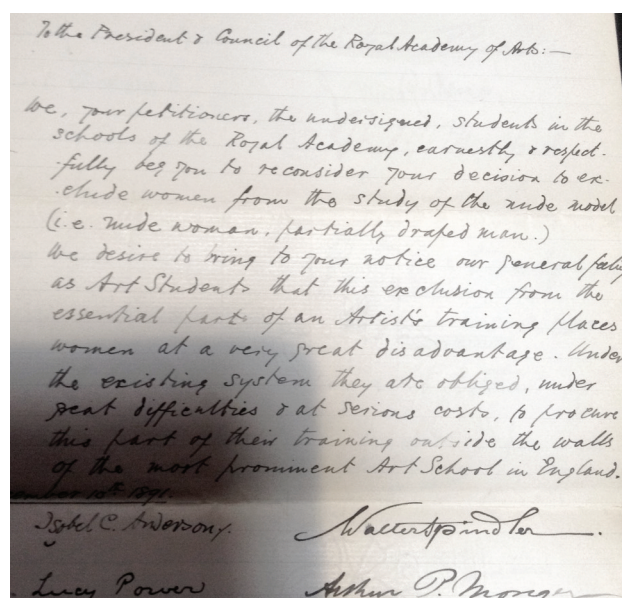 To the President & Council of the Royal Academy of Arts:—
We, your petitioners, the undersigned, students in the
schools of the Royal Academy, earnestly & respect-
-fully beg you to reconsider your decision to ex-
-clude women from the study of the nude model
(i.e. nude woman, partially draped man.)
We desire to bring to your notice our general
as Art Students that this exclusion from the
essential part of an Artist's training places
women at a very great disadvantage. Under
the existing system they are obliged, under
great difficulties & at serious costs, to procure
this part of their training outside the walls
of the most prominent Art School in England.
ember 10th 1891.
Isobel C. Anderson. Walter Spindler
Lucy Power Arthur P.